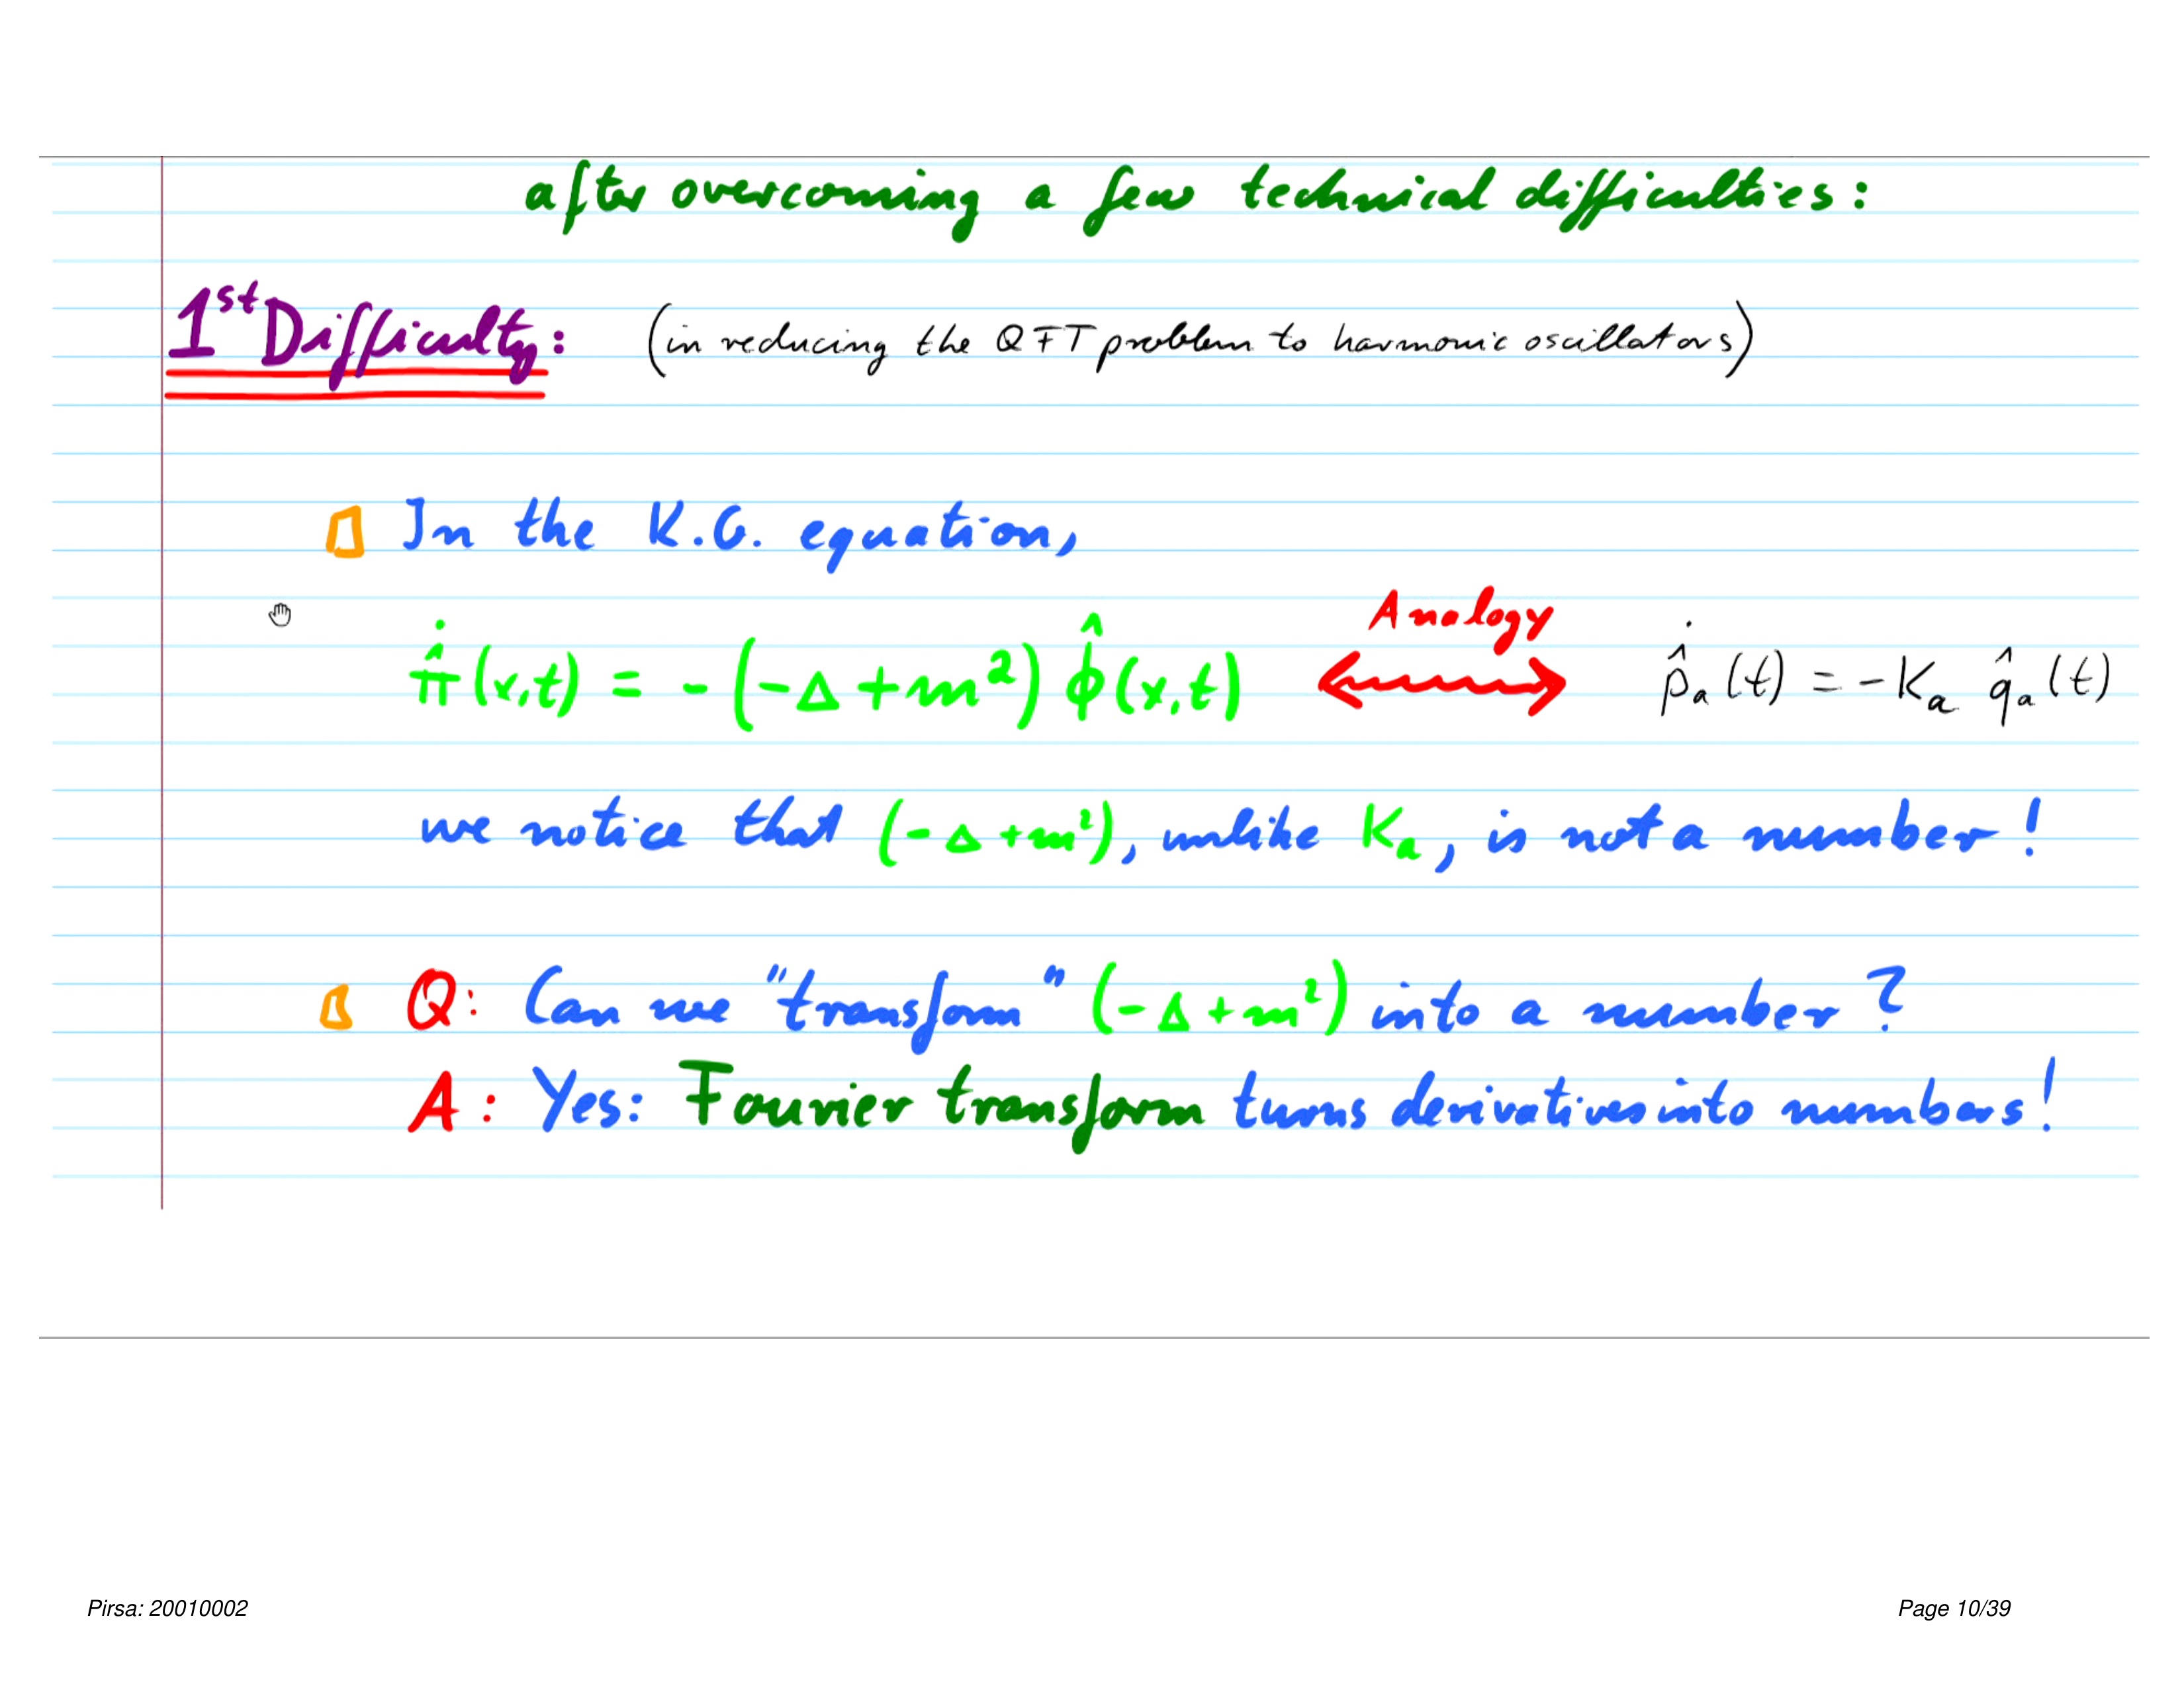 after overcoming a few technical difficulties:
1st Difficulty: (in reducing the QFT problem to harmonic oscillators)
In the K.G. equation,
Analogy
π̂̇(x,t) = -(-Δ+m²) φ̂(x,t) ⟷ p̂̇ₐ(t) = -Kₐ q̂ₐ(t)
we notice that (-Δ+m²), unlike Kₐ, is not a number!
Q: Can we "transform" (-Δ+m²) into a number?
A: Yes: Fourier transform turns derivatives into numbers!
Pirsa: 20010002
Page 10/39